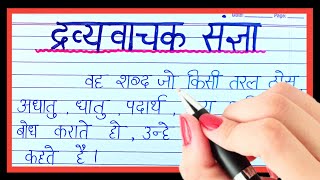 द्रव्यवाचक संज्ञा
वह शब्द जो किसी तरल
अधातु , धातु पदार्थ ,
बोध कराते हो , उन्हे
कहते है ।